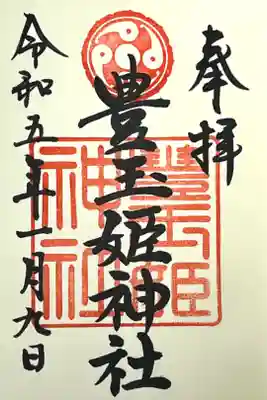 奉拝
豊玉姫神社
豊玉姫
神社
令和五年一月九日